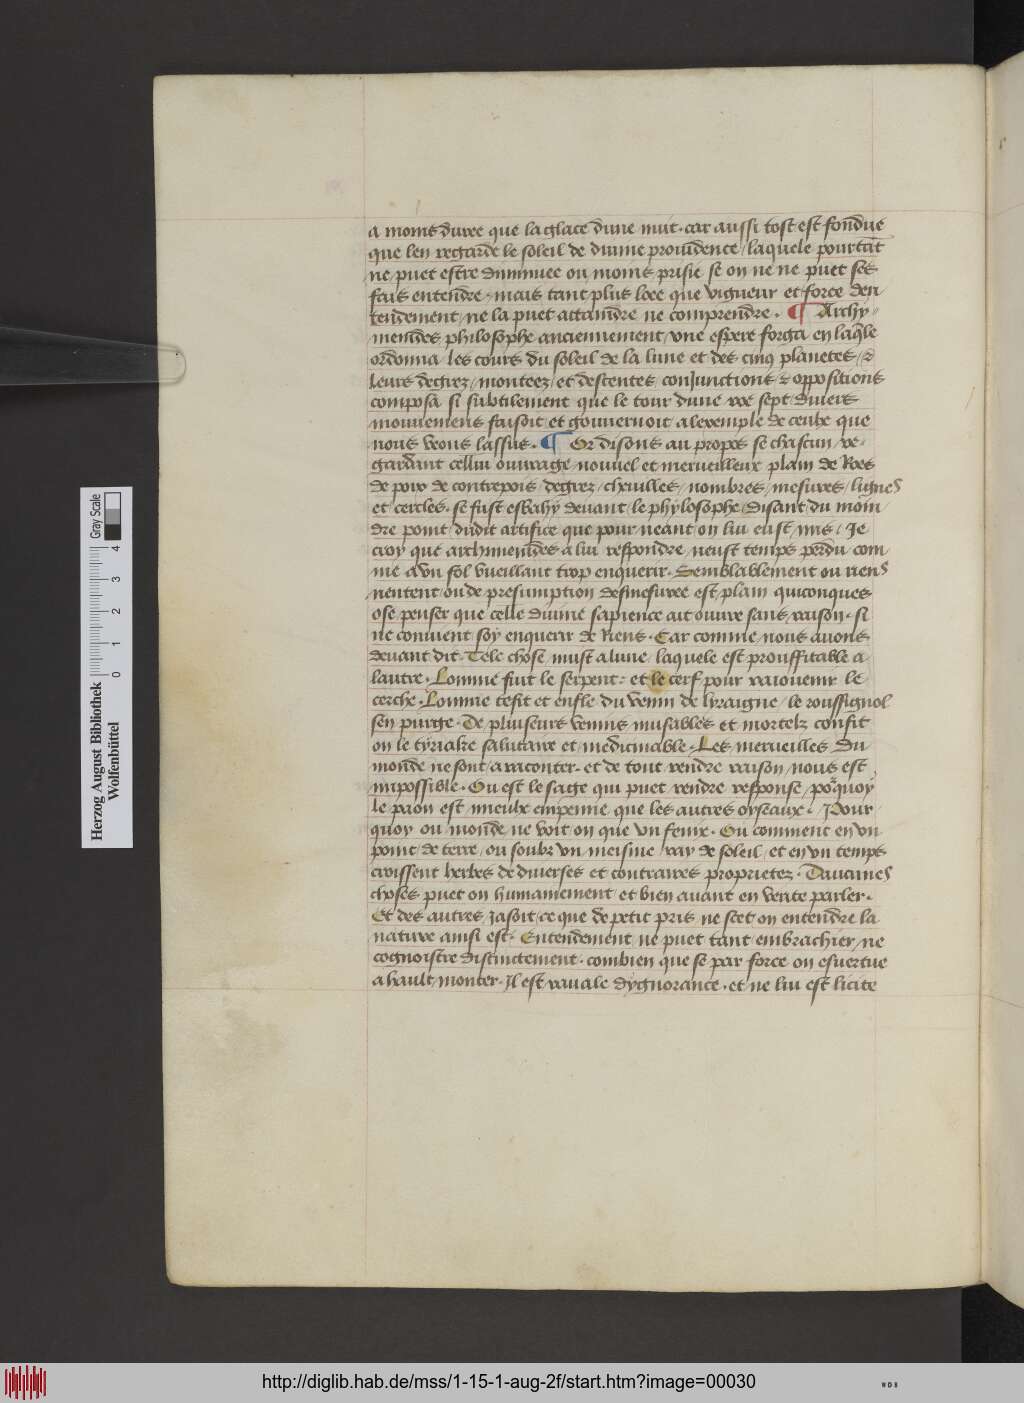 a moins duree que la glace dune nuit. car aussi tost est fondue
que len regarde le soleil de diuine prouidence / laquele pourtāt
ne puet estre diminuee ou moins prisie se on ne ne puet ses
fais entendre. mais tant plus loee que vigueur et force den
tendement / ne la puet attaindre ne comprendre. ¶ Archy-
menides philosophe anciennement / vne espere forga en laq̄le
ordonna les cours du soleil de la lune et des cinq planetes / &
leurs degrez / monteez / et descentes conjunctions & oppositions
composa si subtilement que le tour dune roe sept diuers
mouuemens faisoit et gouuernoit a lexemple de ceulx que
nous veons lassus. ¶ Or disons au propos se chascun re-
gardant cellui ouurage nouuel et merueilleux plain de Roes
de poix de contrepois degrez / cheuilles / nombres / mesures / lignes
et cercles. se fust esbahy deuant le phylosophe / disant du moin
dre point dudit artifice que pour neant on lui eust mis. Je
croy que archimenides a lui respondre neust temps perdu com
me a vn fol vueillant trop enquerir. Semblablement ou riens
nentent ou de presumption desmesuree est plain quiconques
ose penser que celle diuine sapience ait ouure sans raison. si
ne conuient soy enquerir de Riens. Car comme nous auons
deuant dit. Tele chose nuist a lune / laquele est prouffitable a
lautre. Lomme fuit le serpent: et le cerf pour raiouenir le
cerche. Lomme tesit et enfle du venin de lyraigne / le roussignol
sen purge. De pluiseurs venins nuisables et mortelz confit
on le tyriakre salutaire et medicinable. Les merueilles du
monde ne sont a raconter. et de tout rendre raison nous est
impossible. Ou est le sage qui puet rendre response / poʳquoy
le paon est mieulx empenne que les autres oyseaux. Pour
quoy ou monde ne voit on que vn fenix. Ou comment en vn
point de terre / ou soubz vn meisme ray de soleil / et en vn temps
croissent herbes de diuerses et contraires proprietez. Daucunes
choses puet on humainement et bien auant en verite parler.
Et des autres jasoit ce que de petit pris ne scet on entendre la
nature ainsi est. Entendement ne puet tant embrachier / ne
cognoistre distinctement. combien que se par force on esuertue
a hault monter. Il est rauale dygnorance. et ne lui est licite
Herzog August Bibliothek
Wolfenbüttel
0 1 2 3 4
Gray Scale
http://diglib.hab.de/mss/1-15-1-aug-2f/start.htm?image=00030